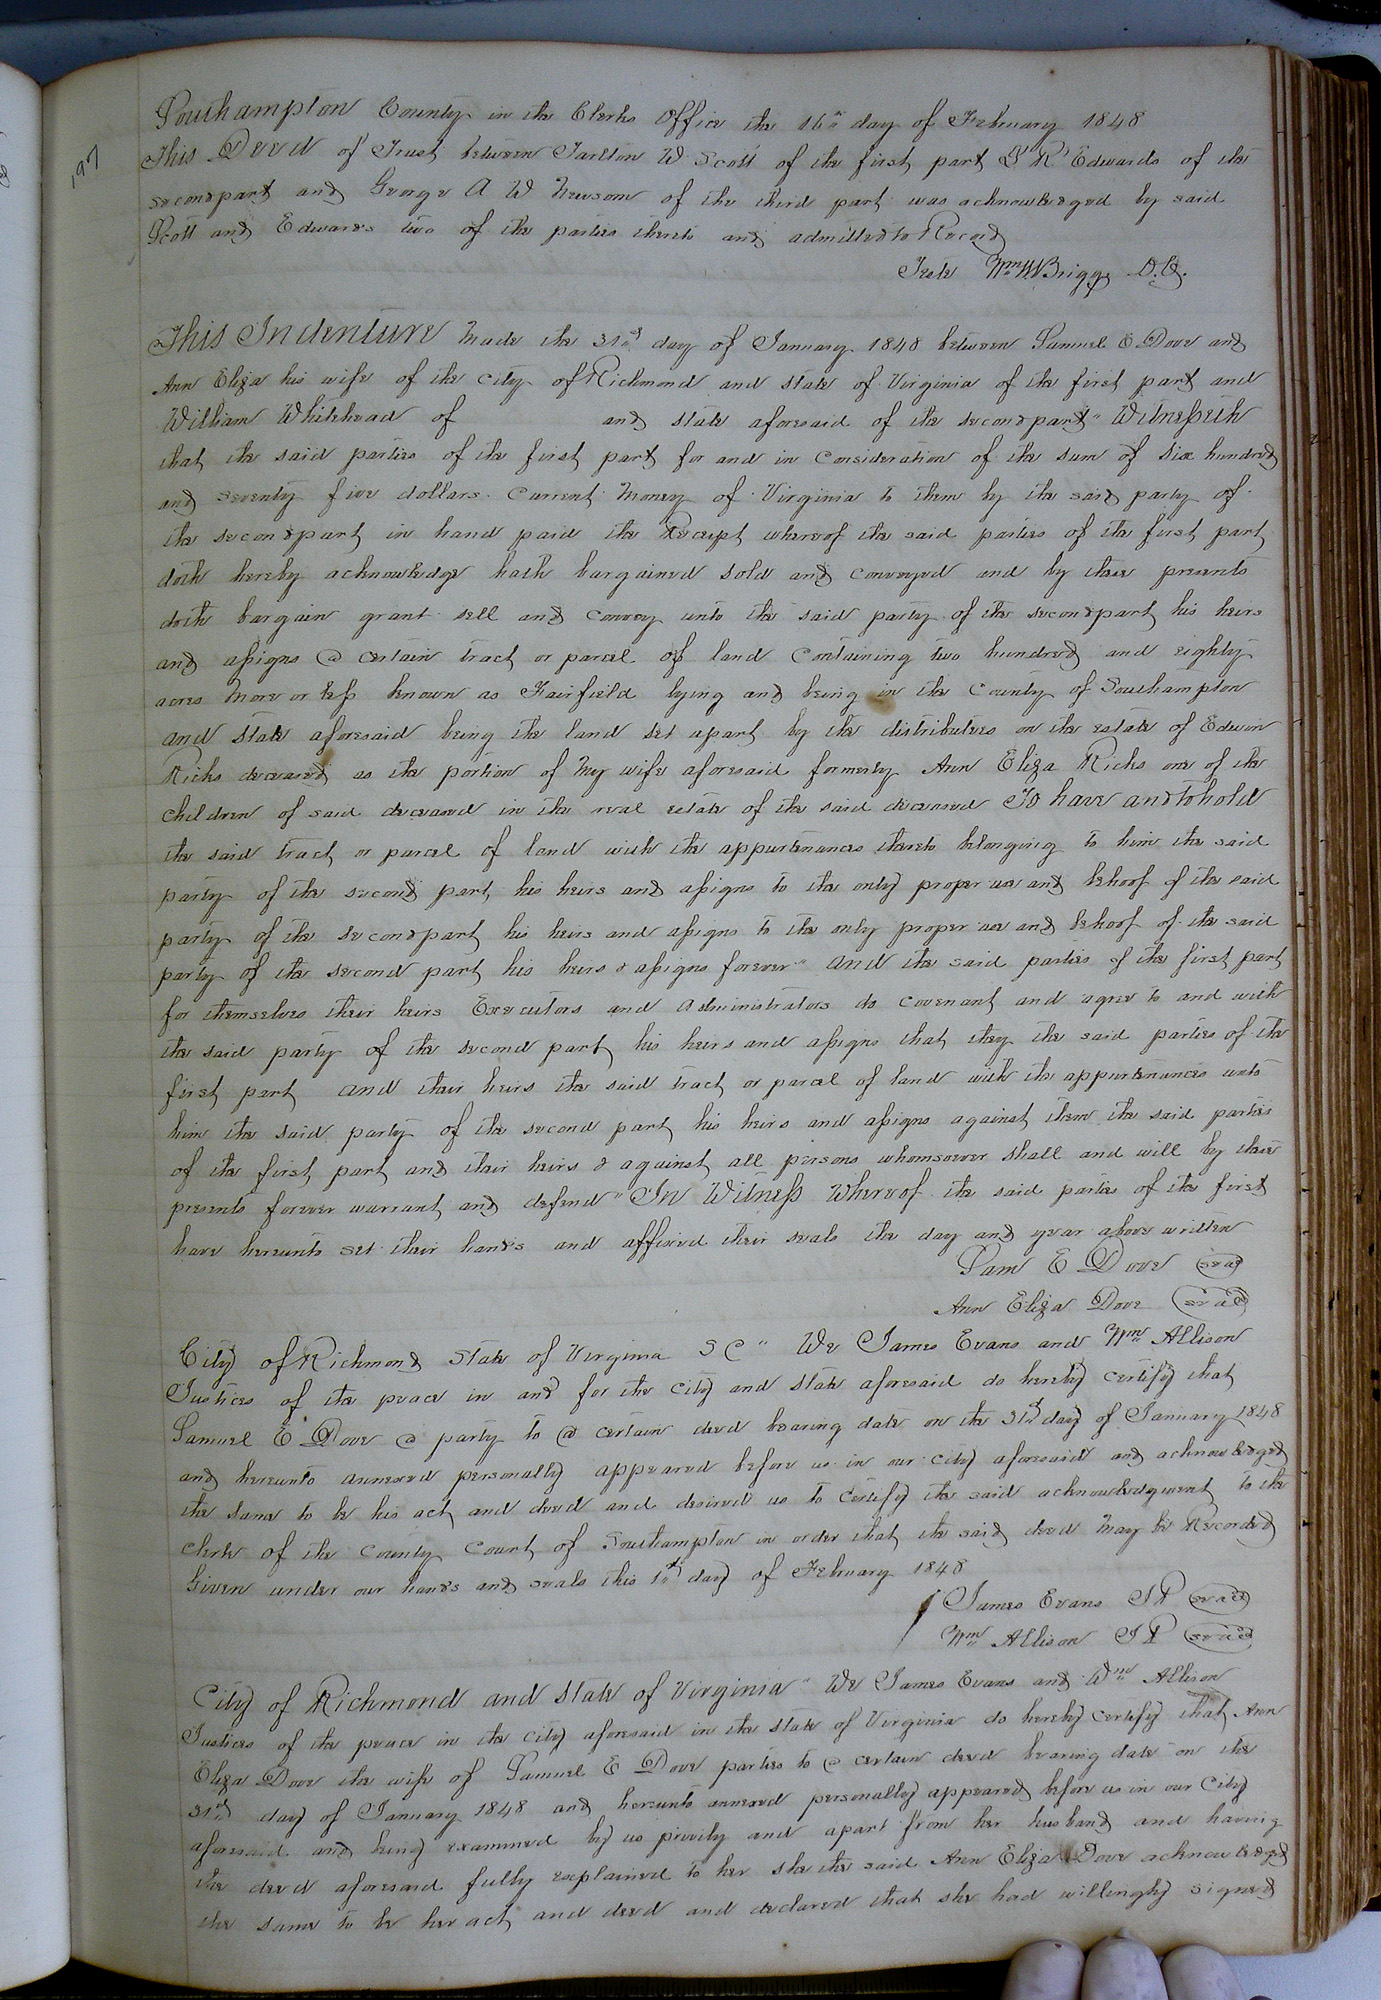 197
Southampton County in the Clerks Office the 16th day of February 1848
This Deed of Trust between Tarlton W Scott of the first part G R Edwards of the
second part and George A W Newsom of the third part was acknowledged by said
Scott and Edwards two of the parties thereto and admitted to Record
Teste Wm W Briggs D.C.
This Indenture Made the 31st day of January 1848 between Samuel E Dove and
Ann Eliza his wife of the city of Richmond and state of Virginia of the first part and
William Whitehead of and state aforesaid of the second part" Witnesseth
that the said parties of the first part for and in Consideration of the sum of Six hundred
and seventy five dollars Current Money of Virginia to them by the said party of
the second part in hand paid the Receipt whereof the said parties of the first part
doth hereby acknowledge hath bargained sold and conveyed and by these presents
doth bargain grant sell and convey unto the said party of the second part his heirs
and assigns a certain tract or parcel of land Containing two hundred and eighty
acres more or less known as Fairfield lying and being in the County of Southampton
and state aforesaid being the land set apart by the distributees on the estate of Edwin
Ricks deceased as the portion of My wife aforesaid formerly Ann Eliza Ricks one of the
children of said deceased in the real estate of the said deceased To have and to hold
the said tract or parcel of land with the appurtenances thereto belonging to him the said
party of the second part his heirs and assigns to the only proper use and behoof of the said
party of the second part his heirs and assigns to the only proper use and behoof of the said
party of the second part his heirs & assigns forever" And the said parties of the first part
for themselves their heirs Executors and Administrators do covenant and agree to and with
the said party of the second part his heirs and assigns that they the said parties of the
first part and their heirs the said tract or parcel of land with the appurtenances unto
him the said party of the second part his heirs and assigns against them the said parties
of the first part and their heirs & against all persons whomsoever shall and will by these
presents forever warrant and defend" In Witness Whereof the said parties of the first
have hereunto set their hands and affixed their seals the day and year above written
Sam E Dove seal
Ann Eliza Dove seal
City of Richmond State of Virginia S C" We James Evans and Wm Allison
Justices of the peace in and for the City and State aforesaid do hereby certify that
Samuel E Dove a party to a certain deed bearing date on the 31st day of January 1848
and hereunto annexed personally appeared before us in our City aforesaid and acknowledged
the same to be his act and deed and desired us to Certify the said acknowledgment to the
clerk of the County Court of Southampton in order that the said deed May be Recorded
Given under our hands and seals this 1st day of February 1848
James Evans J P seal
Wm Allison J P seal
City of Richmond and State of Virginia" We James Evans and Wm Allison
Justices of the peace in the City aforesaid in the State of Virginia do hereby certify that Ann
Eliza Dove the wife of Samuel E Dove parties to a certain deed bearing date on the
31st day of January 1848 and hereunto annexed personally appeared before us in our City
aforesaid and being examined by us privily and apart from her husband and having
the deed aforesaid fully explained to her she the said Ann Eliza Dove acknowledged
the same to be her act and deed and declared that she had willingly signed